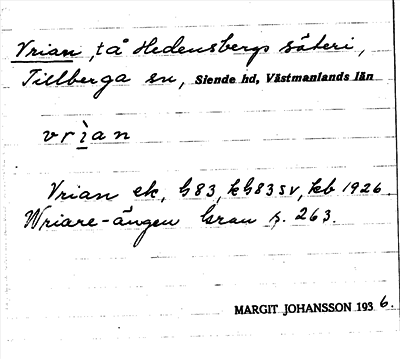 Vrian, tå Hedensbergs säteri,
Tillberga sn, Siende hd, Västmanlands län
vrìan
Vrian ek, G83, kG83SV, kb 1926.
Wriare-ängen Grau s. 263.
MARGIT JOHANSSON 1936.